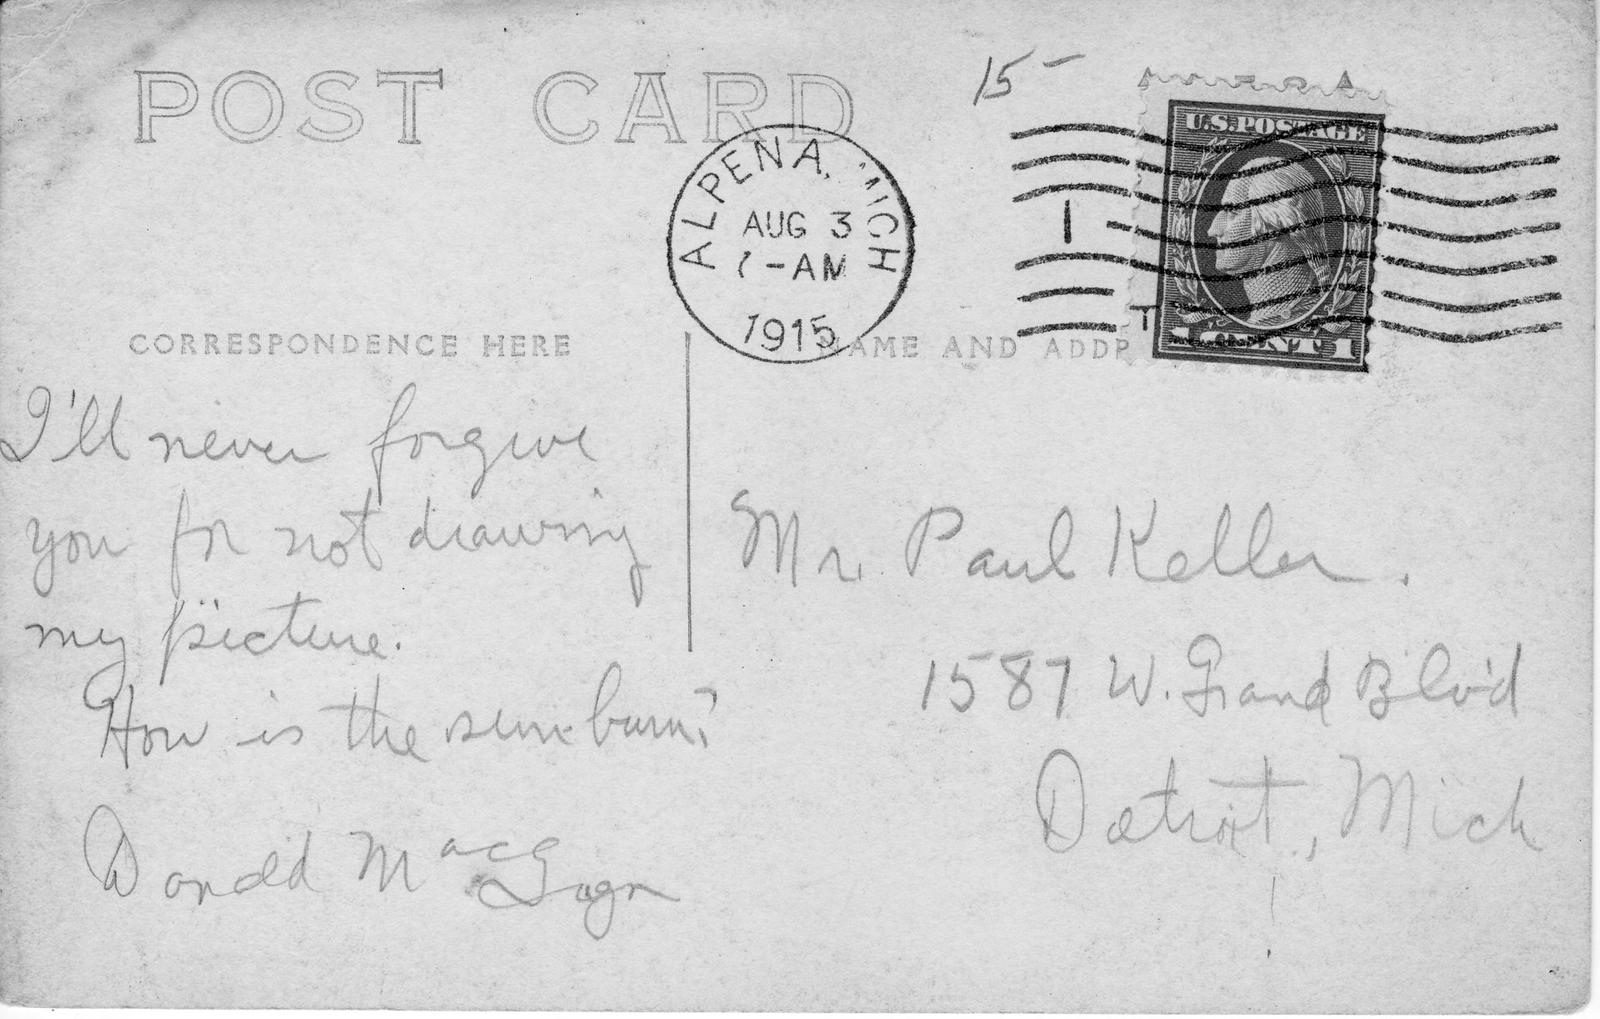 POST CARD
15 -
U.S. POSTAGE
ALPENA, MICH
AUG 3
-AM
1915
1
T
1 CENT 1
CORRESPONDENCE HERE
NAME AND ADDR
I'll never forgive
you for not drawing
my picture.
How is the sunburn?
Donald Mac
Mr. Paul Keller.
1587 W. Grand Blv'd
Detroit, Mich